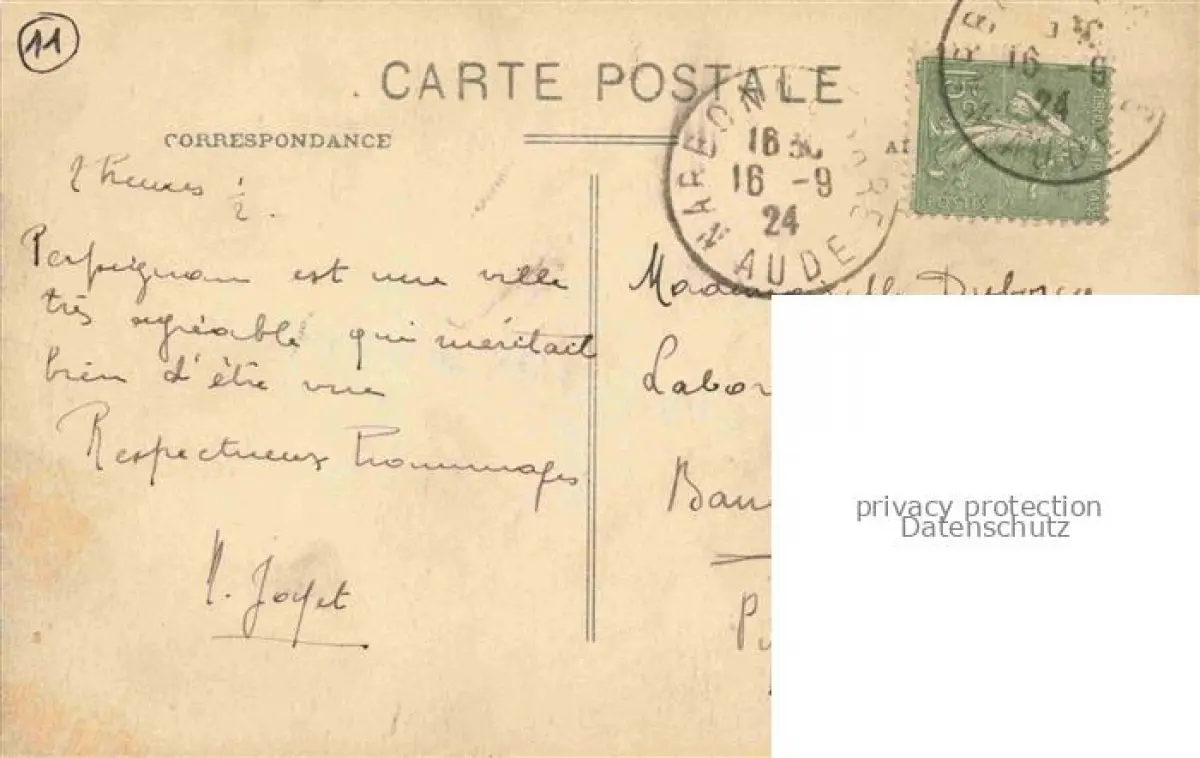 11
CARTE POSTALE
CORRESPONDANCE
NARBONNE
16 30
16 -9
24
AUDE
16 -9
24
15
2 heures 1/2.
Perpignan est une ville
très agréable qui méritait
bien d'être vue
Respectueux hommages
Joyet
Mademoiselle
privacy protection
Datenschutz